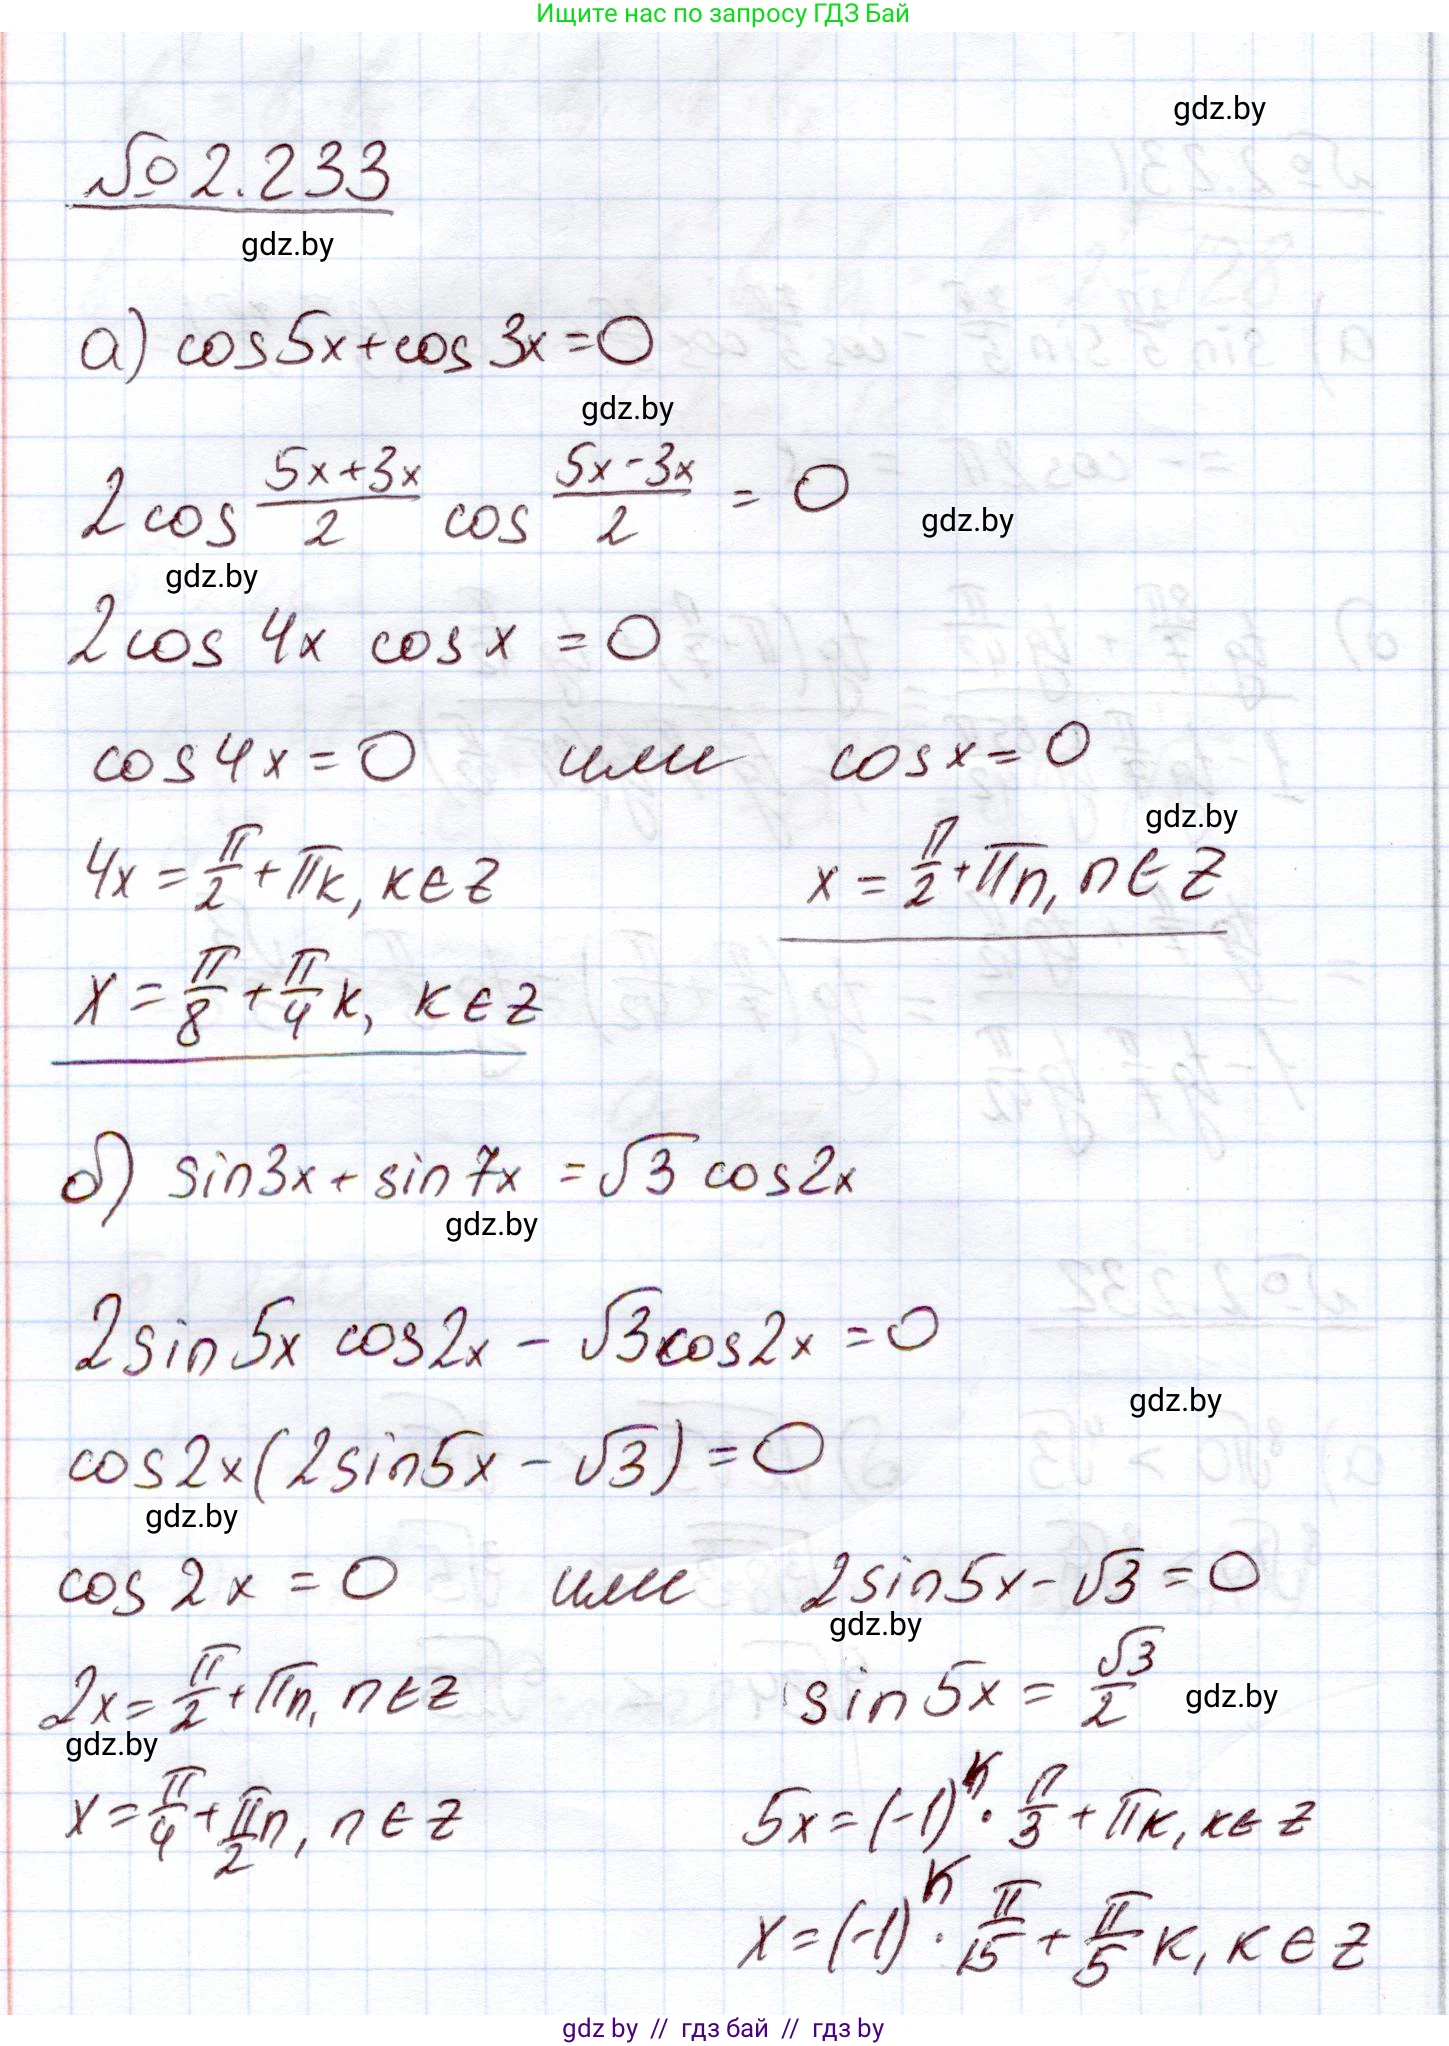 Ищите нас по запросу ГДЗ Бай
gdz.by
№ 2.233
gdz.by
а) cos5x+cos3x=0
gdz.by
2cos (5x+3x)/2 cos (5x-3x)/2 = 0
gdz.by
gdz.by
2cos 4x cos x = 0
cos4x=0 или cosx=0
gdz.by
4x = π/2 + πk, k∈Z x = π/2 + πn, n∈Z
x = π/8 + π/4 k, k∈Z
б) sin3x + sin7x = √3 cos2x
gdz.by
2sin5x cos2x - √3cos2x = 0
gdz.by
cos2x(2sin5x - √3) = 0
gdz.by
cos2x = 0 или 2sin5x - √3 = 0
gdz.by
2x = π/2 + πn, n∈Z sin5x = √3/2
gdz.by
gdz.by
x = π/4 + π/2 n, n∈Z 5x = (-1)^k · π/3 + πk, k∈Z
x = (-1)^k · π/15 + π/5 k, k∈Z
gdz by // гдз бай // гдз by